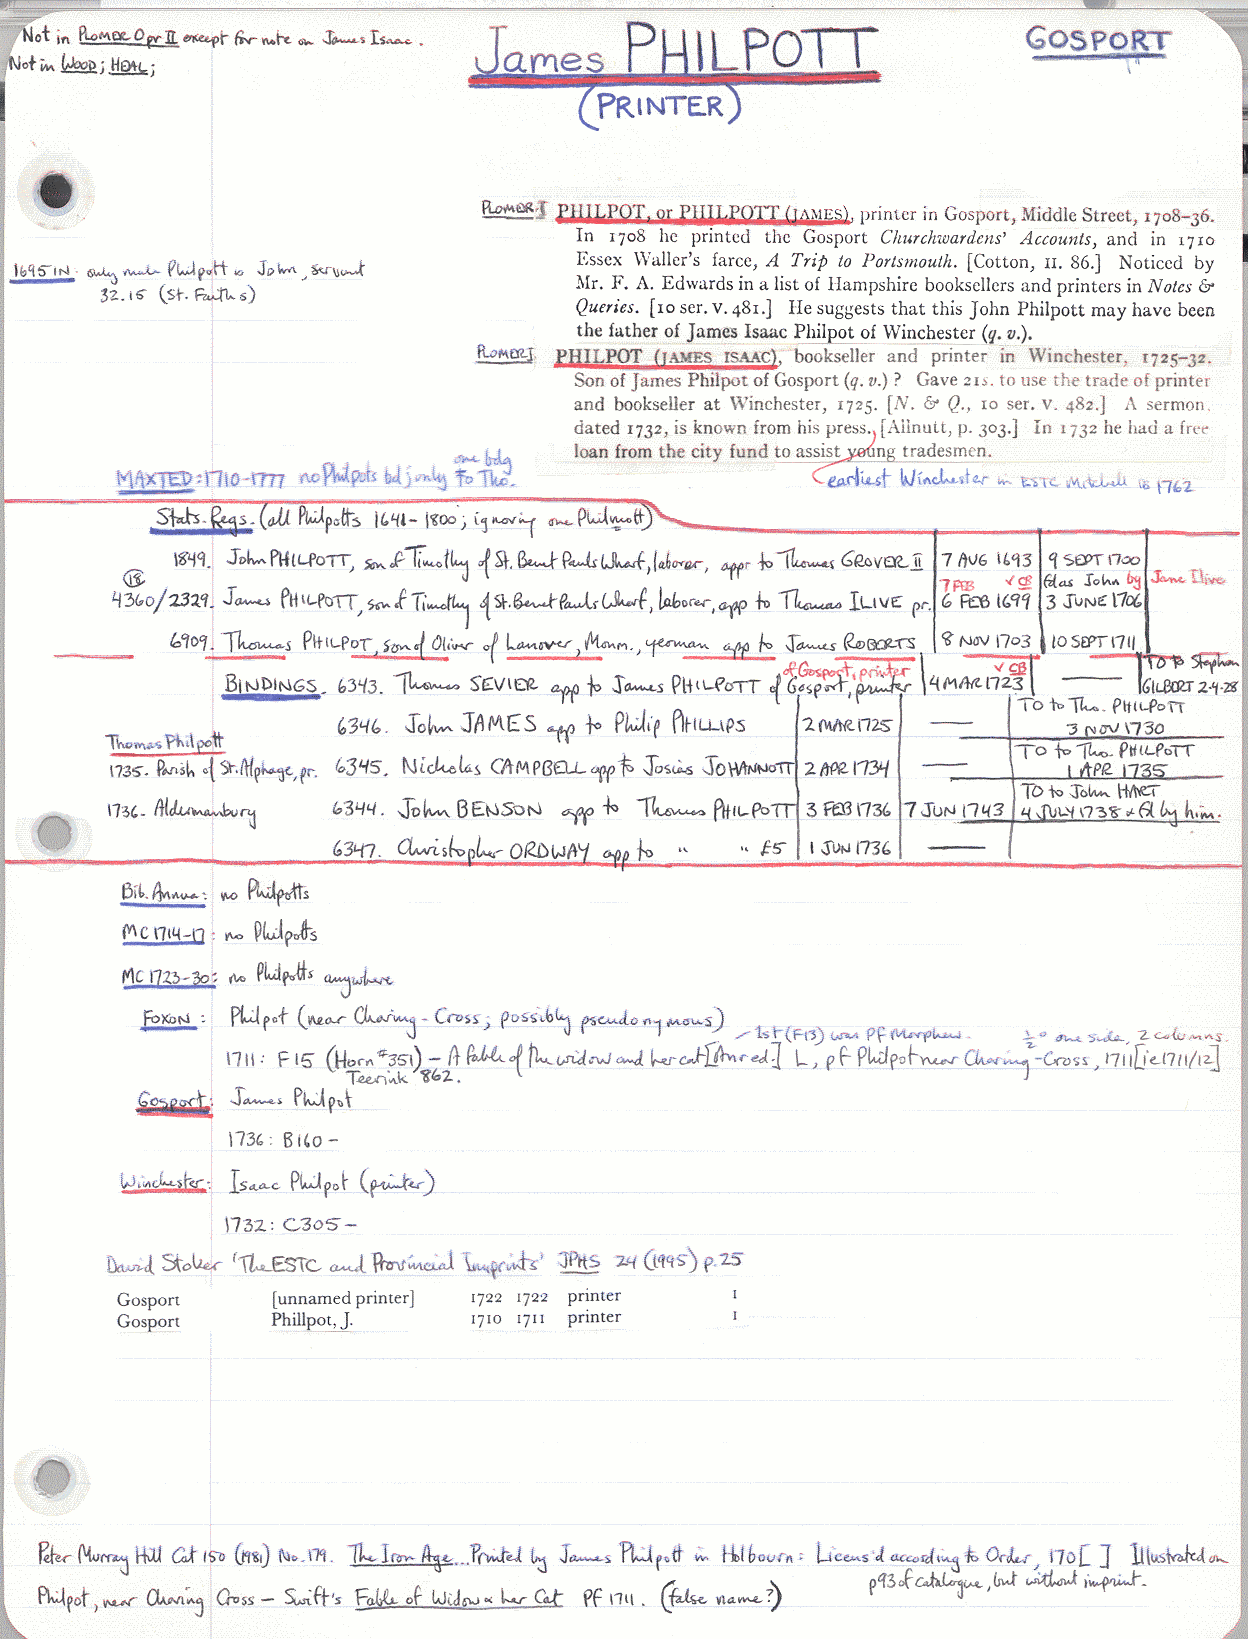 Not in PLOMER O pr II except for note on James Isaac.
Not in WOOD; HEAL;
James PHILPOTT
(PRINTER)
GOSPORT
PLOMER I PHILPOT, or PHILPOTT (JAMES), printer in Gosport, Middle Street, 1708–36.
In 1708 he printed the Gosport Churchwardens' Accounts, and in 1710
Essex Waller's farce, A Trip to Portsmouth. [Cotton, II. 86.] Noticed by
Mr. F. A. Edwards in a list of Hampshire booksellers and printers in Notes &
Queries. [10 ser. V. 481.] He suggests that this John Philpott may have been
the father of James Isaac Philpot of Winchester (q. v.).
1695 IN: only male Philpott is John, servant
32.15 (St. Faith's)
PLOMER I PHILPOT (JAMES ISAAC), bookseller and printer in Winchester, 1725–32.
Son of James Philpot of Gosport (q. v.) ? Gave 21s. to use the trade of printer
and bookseller at Winchester, 1725. [N. & Q., 10 ser. V. 482.] A sermon,
dated 1732, is known from his press. [Allnutt, p. 303.] In 1732 he had a free
loan from the city fund to assist young tradesmen.
earliest Winchester in ESTC Mitchell is 1762
MAXTED: 1710-1777 no Philpots bd; only one bdg to Tho.
Stats. Regs. (all Philpotts 1641-1800; ignoring one Philmott)
1849. John PHILPOTT, son of Timothy of St. Benet Pauls Wharf, laborer, appr to Thomas GROVER II 7 AUG 1693 9 SEPT 1700
(18) 7 FEB ✓ CB fd as John by Jane Ilive
4360/2329. James PHILPOTT, son of Timothy of St. Benet Pauls Wharf, laborer, app to Thomas ILIVE pr. 6 FEB 1699 3 JUNE 1706
6909. Thomas PHILPOT, son of Oliver of Lanover, Monm., yeoman app to James ROBERTS 8 NOV 1703 10 SEPT 1711
of Gosport, printer ✓ CB
BINDINGS. 6343. Thomas SEVIER app to James PHILPOTT of Gosport, printer 4 MAR 1723 — TO to Stephen GILBERT 2-4-28
6346. John JAMES app to Philip PHILLIPS 2 MAR 1725 — TO to Tho. PHILPOTT 3 NOV 1730
Thomas Philpott
1735. Parish of St. Alphage, pr. 6345. Nicholas CAMPBELL app to Josias JOHANNOTT 2 APR 1734 — TO to Tho. PHILPOTT 1 APR 1735
1736. Aldermanbury 6344. John BENSON app to Thomas PHILPOTT 3 FEB 1736 7 JUN 1743 TO to John HART 4 JULY 1738 & fd by him.
6347. Christopher ORDWAY app to " " £5 1 JUN 1736 —
Bib. Annua: no Philpotts
MC 1714-17: no Philpotts
MC 1723-30: no Philpotts anywhere
FOXON: Philpot (near Charing-Cross; possibly pseudonymous)
1st (F13) was pf Morphew. ½° one side, 2 columns.
1711: F15 (Horn #351) – A fable of the widow and her cat [Anr ed.] L, pf Philpot near Charing-Cross, 1711 [ie 1711/12]
Teerink 862.
Gosport: James Philpot
1736: B160 –
Winchester: Isaac Philpot (printer)
1732: C305 –
David Stoker 'The ESTC and Provincial Imprints' JPHS 24 (1995) p. 25
Gosport [unnamed printer] 1722 1722 printer 1
Gosport Phillpot, J. 1710 1711 printer 1
Peter Murray Hill Cat 150 (1981) No. 179. The Iron Age... Printed by James Philpott in Holbourn: Licens'd according to Order, 170[ ] Illustrated on
p93 of catalogue, but without imprint.
Philpot, near Charing Cross – Swift's Fable of Widow & her Cat PF 1711. (false name?)